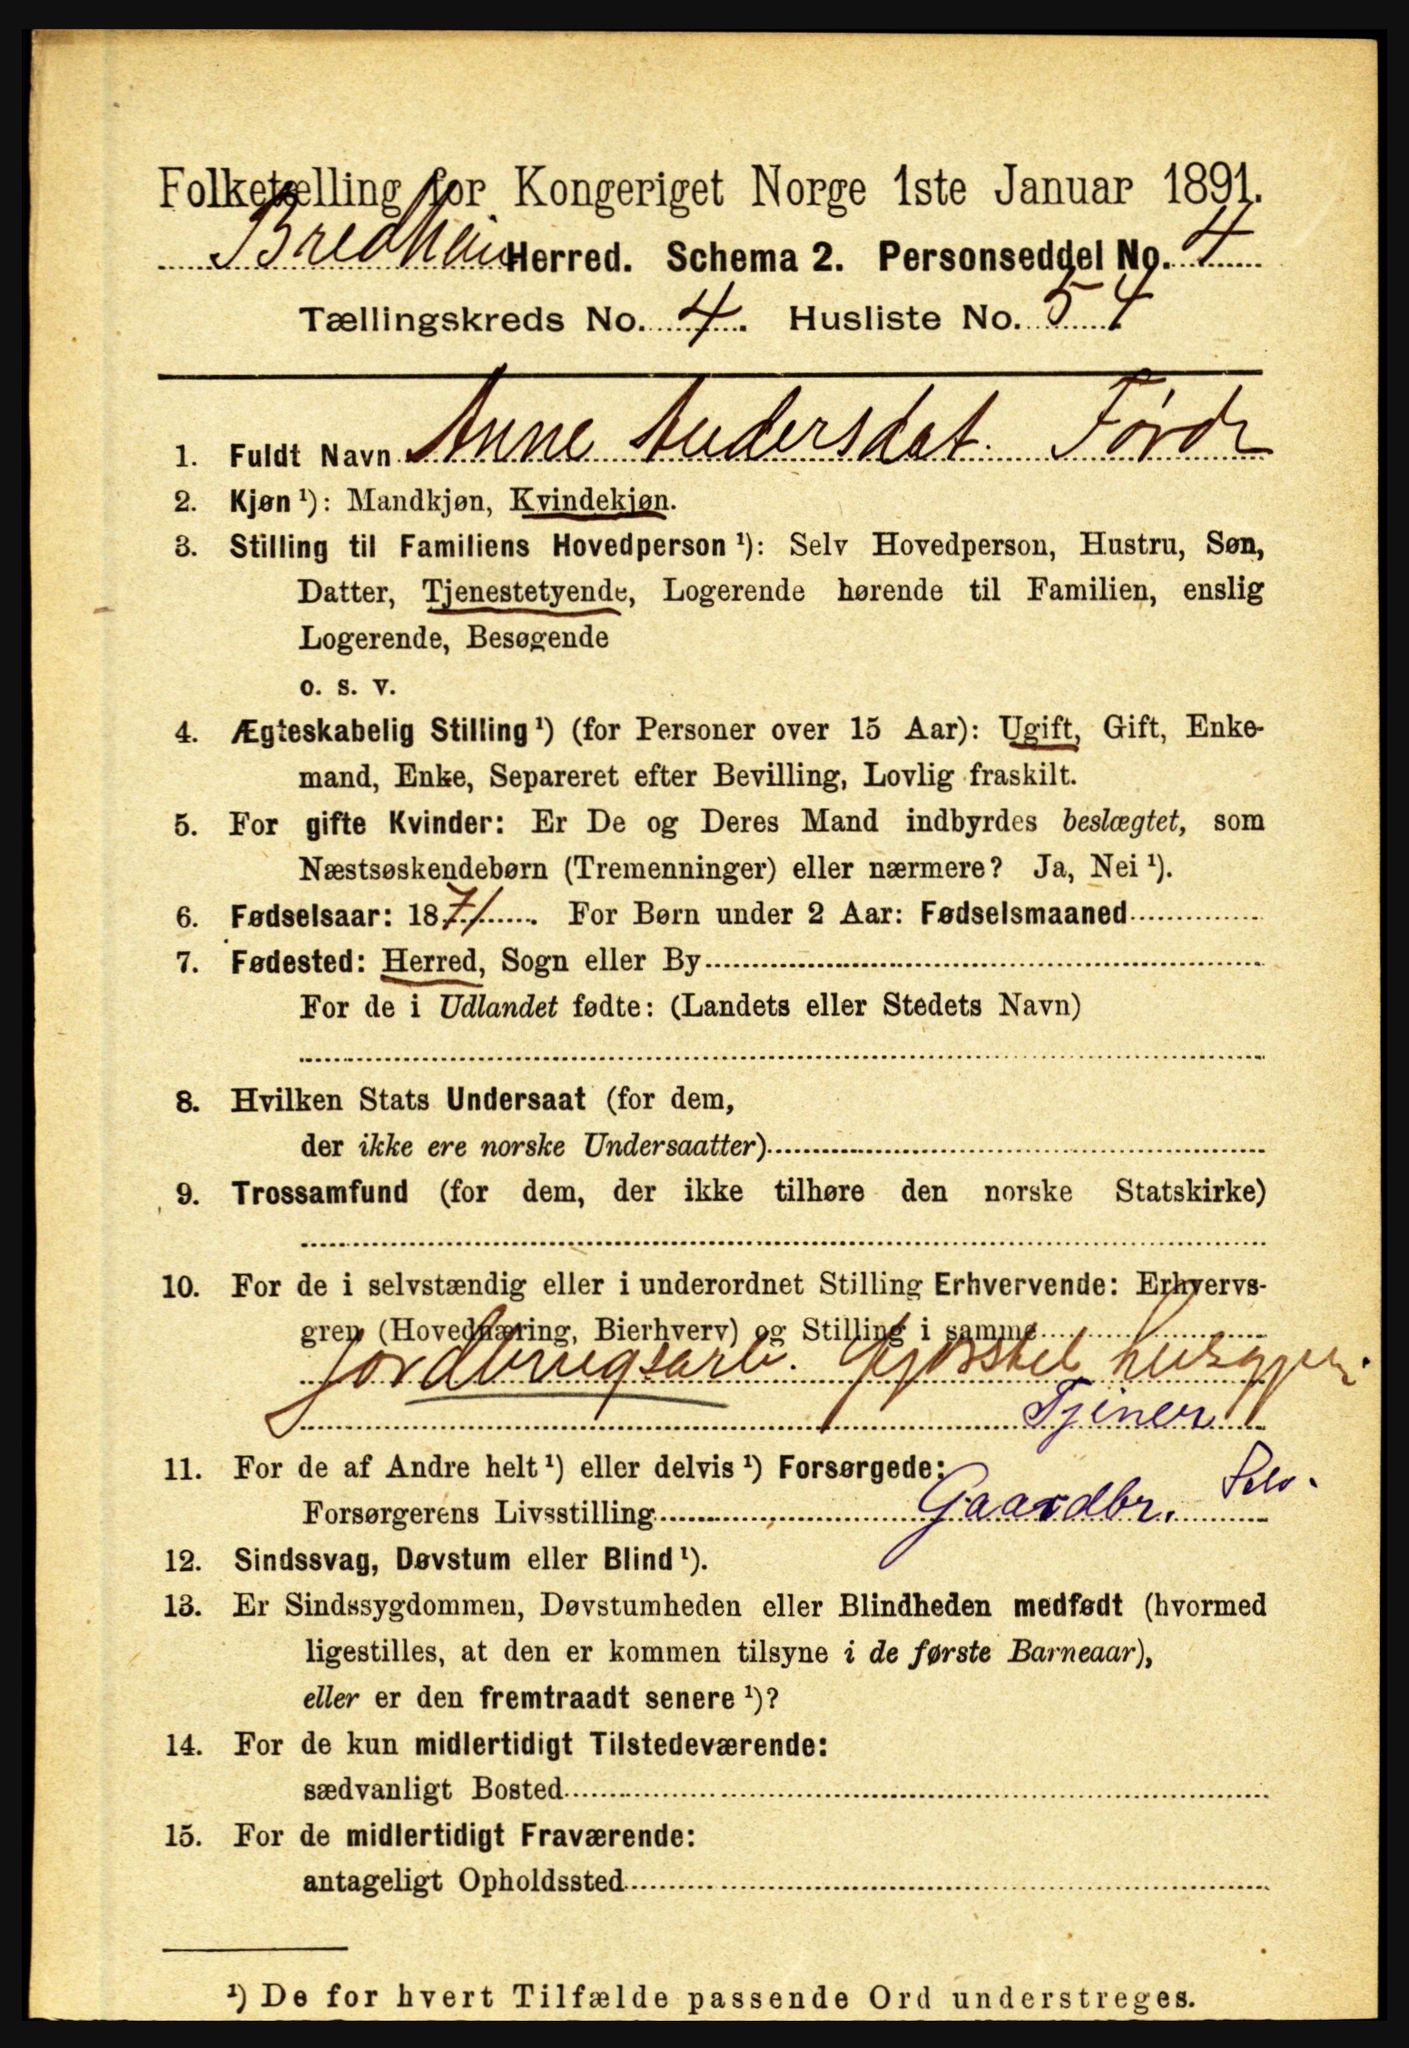 Folketælling for Kongeriget Norge 1ste Januar 1891.
Bredheim Herred. Schema 2. Personseddel No. 4
Tællingskreds No. 4. Husliste No. 54
1. Fuldt Navn Anne Andersdat. Førde
2. Kjøn ¹): Mandkjøn, Kvindekjøn.
3. Stilling til Familiens Hovedperson ¹): Selv Hovedperson, Hustru, Søn,
Datter, Tjenestetyende, Logerende hørende til Familien, enslig
Logerende, Besøgende
o. s. v.
4. Ægteskabelig Stilling ¹) (for Personer over 15 Aar): Ugift, Gift, Enke-
mand, Enke, Separeret efter Bevilling, Lovlig fraskilt.
5. For gifte Kvinder: Er De og Deres Mand indbyrdes beslægtet, som
Næstsøskendebørn (Tremenninger) eller nærmere? Ja, Nei ¹).
6. Fødselsaar: 1871. For Børn under 2 Aar: Fødselsmaaned
7. Fødested: Herred, Sogn eller By
For de i Udlandet fødte: (Landets eller Stedets Navn)
8. Hvilken Stats Undersaat (for dem,
der ikke ere norske Undersaatter)
9. Trossamfund (for dem, der ikke tilhøre den norske Statskirke)
10. For de i selvstændig eller i underordnet Stilling Erhvervende: Erhvervs-
gren (Hovednæring, Bierhverv) og Stilling i samme
Jordbrugsarb. Husgjer.
Tjener
11. For de af Andre helt ¹) eller delvis ¹) Forsørgede:
Forsørgerens Livsstilling Gaardbr. Selv.
12. Sindssvag, Døvstum eller Blind ¹).
13. Er Sindssygdommen, Døvstumheden eller Blindheden medfødt (hvormed
ligestilles, at den er kommen tilsyne i de første Barneaar),
eller er den fremtraadt senere ¹)?
14. For de kun midlertidigt Tilstedeværende:
sædvanligt Bosted
15. For de midlertidigt Fraværende:
antageligt Opholdssted
¹) De for hvert Tilfælde passende Ord understreges.